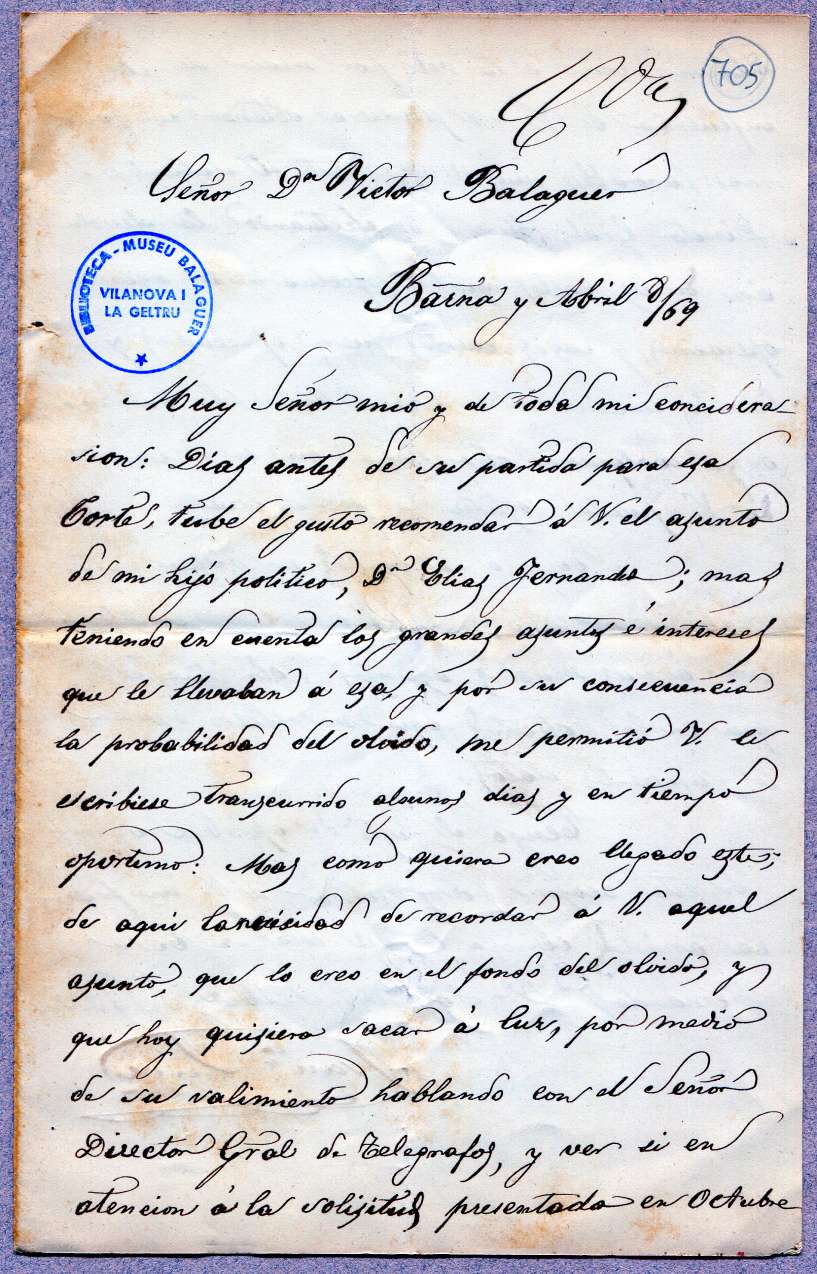 705
Señor Dn Victor Balaguer
BIBLIOTECA - MUSEU BALAGUER
VILANOVA I
LA GELTRU
Barna y Abril 8/69
Muy Señor mio y de toda mi concidera-
sion: Dias antes de su partida para esa
Corte, tube el gusto recomendar á V. el asunto
de mi hijo politico, Dn Elias Fernandes; mas
teniendo en cuenta los grandes asuntos é intereses
que le llevaban á esa, y por su consecuencia
la probabilidad del olvido, me permitió V. le
escribiese transcurrido algunos dias y en tiempo
oportuno: Mas como quiera creo llegado este;
de aqui la nesisidad de recordar á V. aquel
asunto, que lo creo en el fondo del olvido, y
que hoy quisiera sacar á luz, por medio
de su valimiento hablando con el Señor
Director Gral de Telegrafos, y ver si en
atencion á la solisitud presentada en Octubre